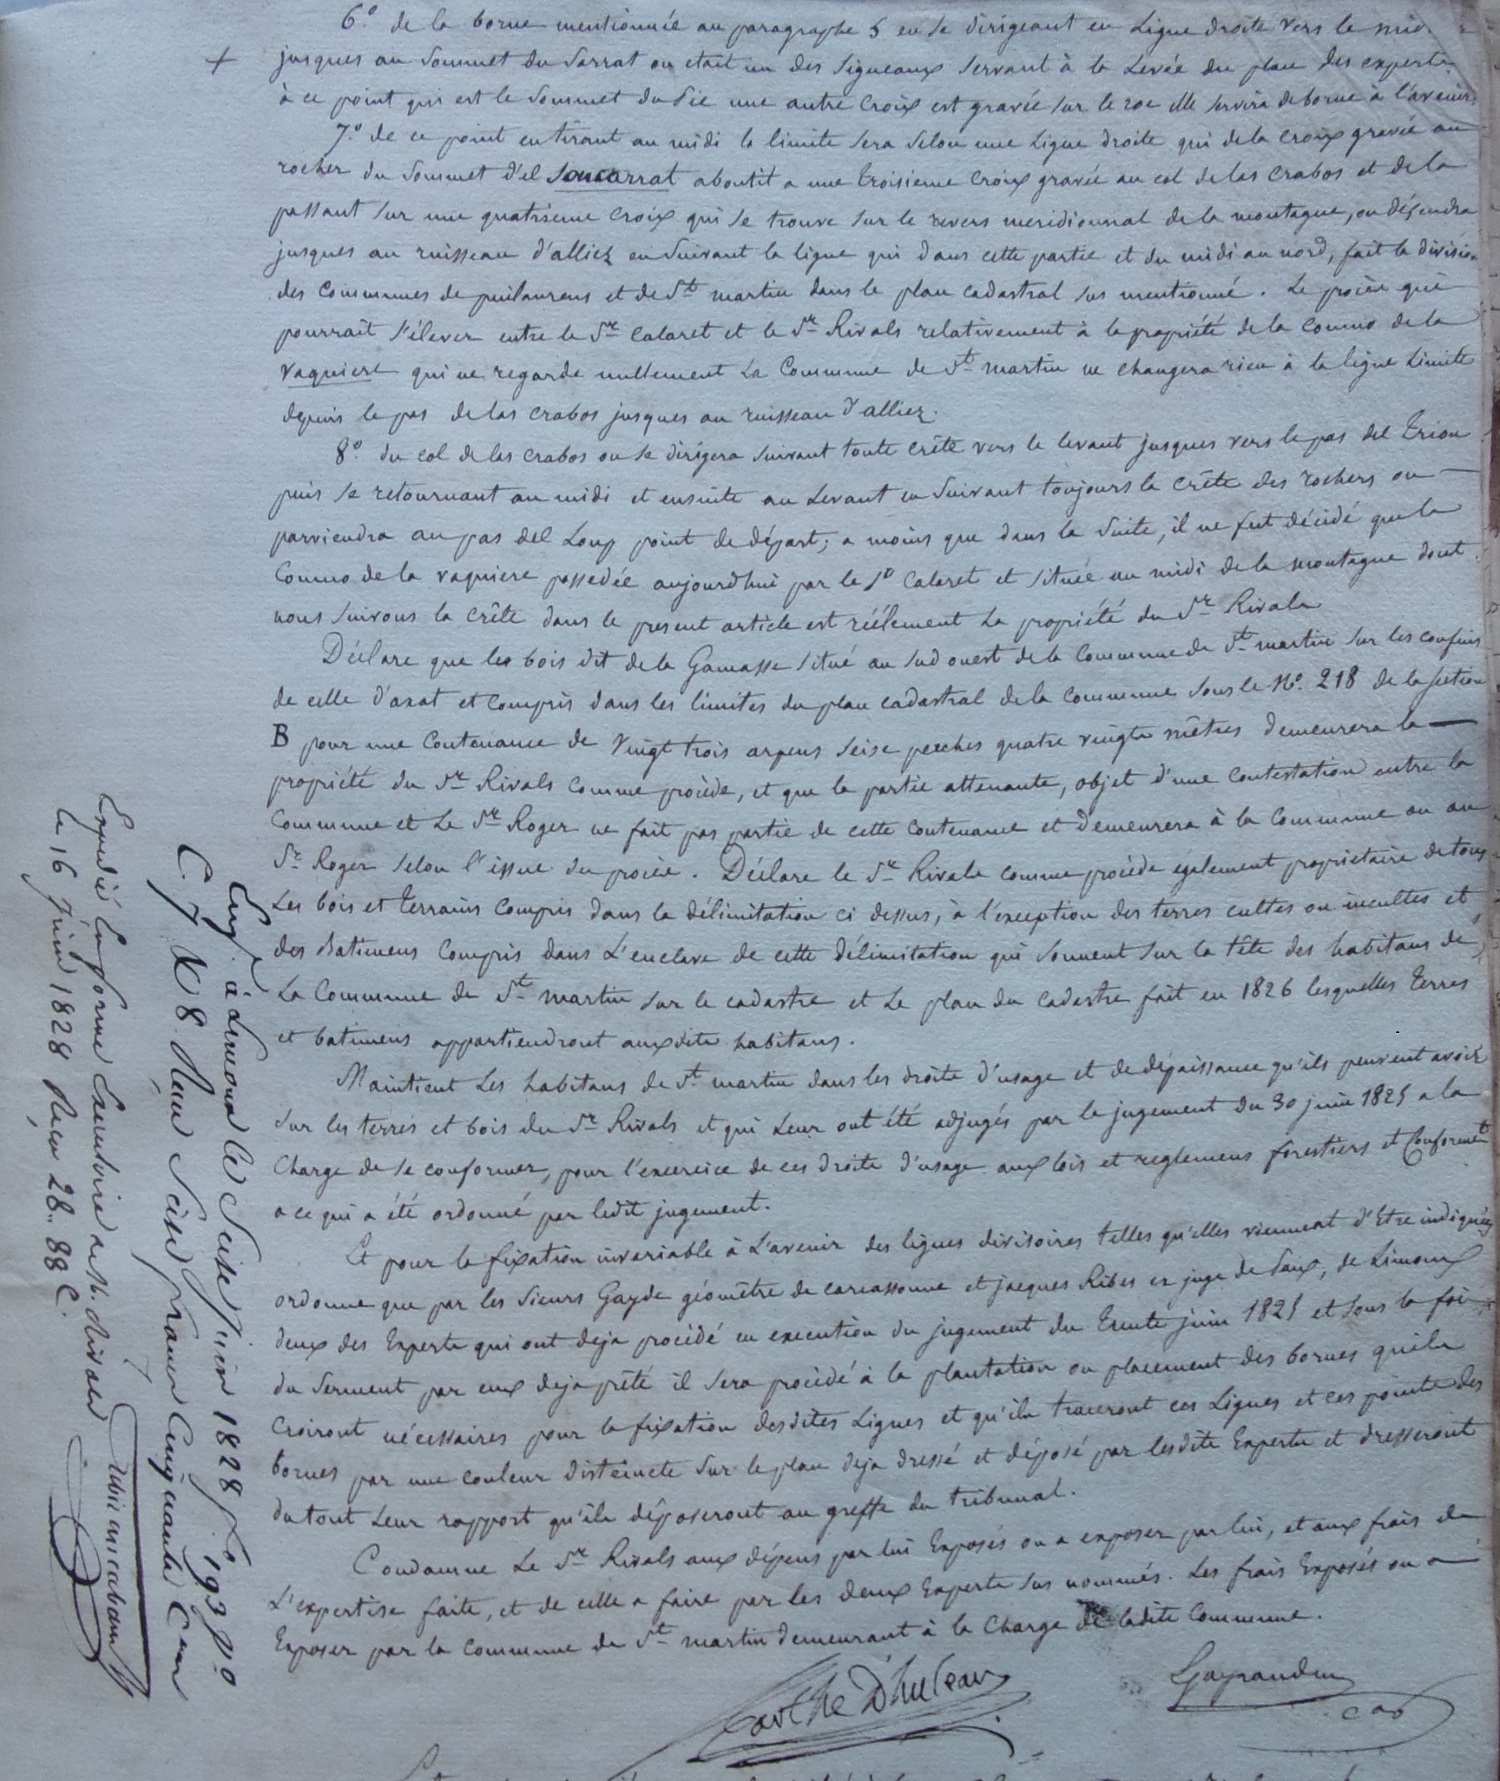 6° de la borne mentionnée au paragraphe 5 en se dirigeant en Ligne droite vers le
+ jusques au Sommet du Sarrat ou etait un des signeaux servant à la Levée du plan des experts
à ce point qui est le Sommet du Sié une autre croix est gravée sur le roc elle servira de borne à l'avenir
7° de ce point en tirant au midi la limite sera selon une ligne droite qui de la croix gravée au
rocher du Sommet d'el Soucarrat aboutit a une troisieme croix gravée au col de las crabos et de la
passant sur une quatrieme croix qui se trouve sur le revers meridionnal de la montagne, on déscendra
jusques au ruisseau d'alliez en suivant la ligne qui dans cette partie et du midi au nord, fait la division
des Communes de puilaurens et de St martin dans le plan cadastral sus mentionné. Le procès qui
pourrait s'élever entre le Sr Calaret et le Sr Rivals relativement à la propriété de la Coumo de la
vaquiere qui ne regarde nullement La Commune de St martin ne changera rien à la ligne Limite
depuis le pas de las crabos jusques au ruisseau d'alliez.
8° du col de las crabos on se dirigera suivant toute crête vers le levant jusques vers le pas del Trion
puis se retournant au midi et ensuite au Levant en suivant toujours la crête des rochers on
parviendra au pas del Loup point de départ; a moins que dans la suite, il ne fut décidé que la
Coumo de la vaquiere possedée aujourdhui par le Sr Calaret et située au midi de la montagne dont
nous suivons la crête dans le present article est réélement La propriété du Sr Rivals
Déclare que les bois dit de la Gamasse situé au Sud ouest de la Commune de St martin sur les confins
de celle d'axat et compris dans les limites du plan cadastral de la commune sous le No. 218 de la Section
B pour une Contenance de vingt trois arpens seise perches quatre vingts mêtres demeurera la
propriété du Sr Rivals comme procède, et que la partie attenante, objet d'une contestation entre la
Commune et Le Sr Roger ne fait pas partie de cette contenance et demeurera à la Commune ou au
Sr Roger selon l'issue du procès. Déclare le Sr Rivals comme procède également propriétaire de tous
Les bois et terrains compris dans la délimitation ci dessus, à l'exception des terres cultes ou incultes et
des Batimens compris dans L'enclave de cette délimitation qui sonnent sur la tête des habitans de
La Commune de St martin sur le cadastre et Le plan du cadastre fait en 1826 lesquelles terres
et batimens appartiendront auxdits habitans.
Maintient Les habitans de St martin dans les droits d'usage et de dépaissance qu'ils peuvent avoir
sur les terres et bois du Sr Rivals et qui Leur ont été adjugés par le jugement du 30 juin 1825 a la
Charge de se conformer, pour l'excercice de ces droits d'usage aux lois et reglemens forestiers et Conformemt
a ce qui a été ordonné par ledit jugement.
Et pour la fixation invariable à L'avenir des lignes divisoires telles qu'elles viennent d'Etre indiquées
ordonne que par les Sieurs Gayde géomêtre de carcassonne et jacques Ribes ex juge de Paix, de Limoux
deux des Experts qui ont deja procédé en execution du jugement du Trente juin 1825 et sous la foi
du Serment par eux deja prêté il sera procédé à la plantation ou placement des bornes qu'ils
Croiront nécessaires pour la fixation desdites Lignes et qu'ils traceront ces Lignes et ces points des
bornes par une couleur distincte sur le plan deja dressé et déposé par lesdits Experts et dresseront
du tout Leur rapport qu'ils déposeront au greffe du tribunal.
Condamne Le Sr Rivals aux dépens par lui Exposés ou a exposer par lui, et aux frais de
L'expertise faite, et de celle a faire par les deux Experts sus nommés. Les frais Exposés ou a
Exposer par la Commune de St martin demeurant à la Charge de ladite Commune.
Enrg. à Limoux le Seise juin 1828 Fo 193 Ro
C. 7 & 8 Reçu Seise francs Cinquante Cens
Expedié En forme Executoire a M. Rivals
le 16 juin 1828 Reçu 28.. 88 C.